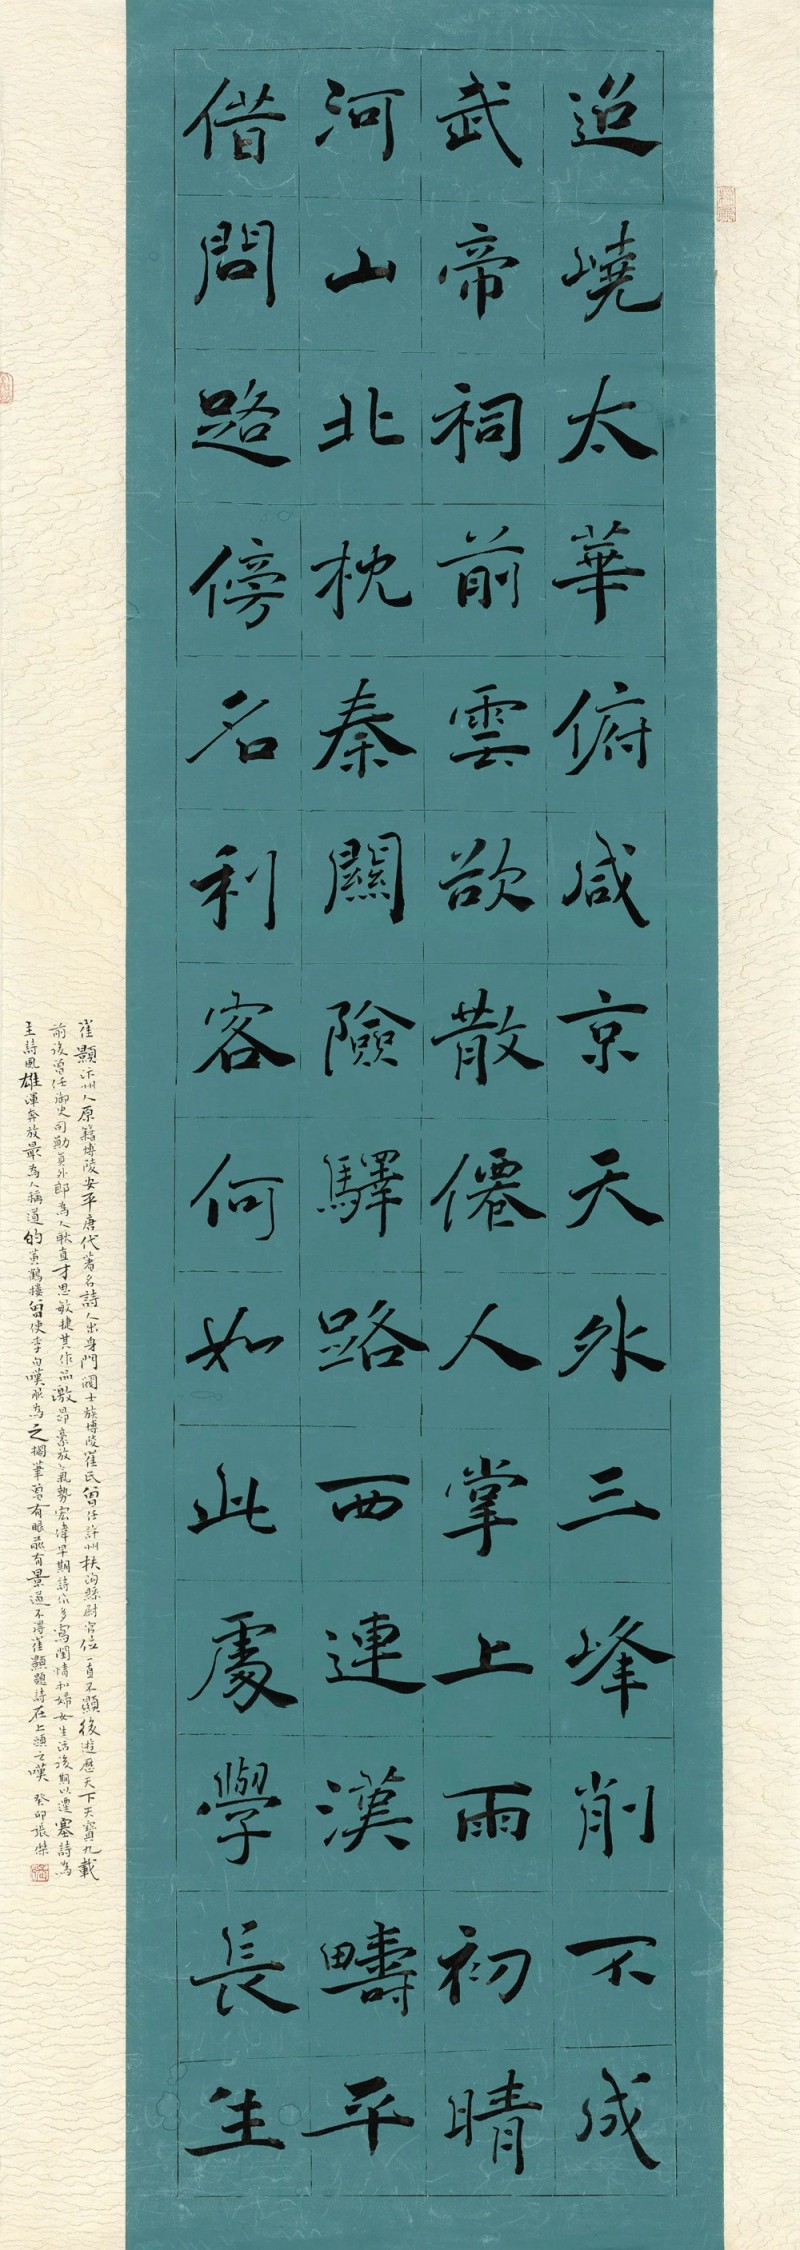 迢嶢太華俯咸京天外三峰削不成
武帝祠前雲欲散僊人掌上雨初晴
河山北枕秦關險驛路西連漢疇平
借問路傍名利客何如此處學長生
崔顥汴州人原籍博陵安平唐代著名詩人出身門閥士族博陵崔氏曾任許州扶溝縣尉官位一直不顯後遊歷天下天寶九載
前後曾任御史司勳員外郎為人耿直才思敏捷其作品激昂豪放氣勢宏偉早期詩作多寫閨情和婦女生活後期以邊塞詩為
主詩風雄渾奔放最為人稱道的黃鶴樓曾使李白嘆服為之擱筆曾有眼前有景道不得崔顥題詩在上頭之嘆 癸卯張傑